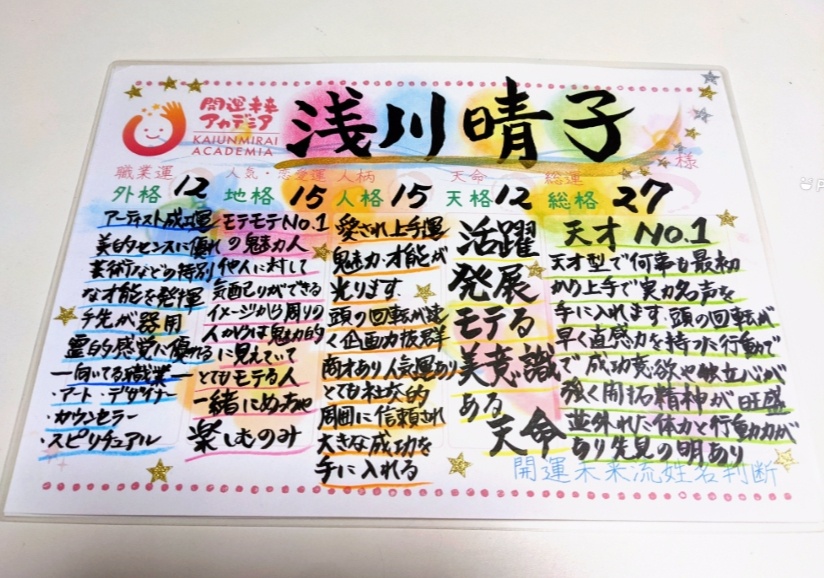 開運未来
アカデミア
KAIUNMIRAI
ACADEMIA
浅川晴子
様
職業運
人気・恋愛運
人柄
天命
総運
外格 12
地格 15
人格 15
天格 12
総格 27
アーティスト成功運
美的センスに優れ
芸術などの特別
な才能を発揮
手先が器用
霊的感覚に優れる
一向いてる職業一
・アート・デザイナー
・カウンセラー
・スピリチュアル
モテモテNo.1
の魅力人
他人に対して
気配りができる
イメージから周りの
人からは魅力的
に見えていて
とてもモテる人
一緒にめっちゃ
楽しむのみ
愛され上手運
魅力・才能が
光ります
頭の回転が速
く企画力抜群
商才あり人気運あり
とても社交的
周囲に信頼され
大きな成功を
手に入れる
活躍
発展
モテる
美意識
ある
天命
天才 No.1
天才型で何事も最初
から上手で実力名声を
手に入れます。頭の回転が
早く直感力を持つた行動力
で成功意欲や独立心が
強く開拓精神が旺盛
並外れた体力と行動力が
あり先見の明あり
開運未来流姓名判断